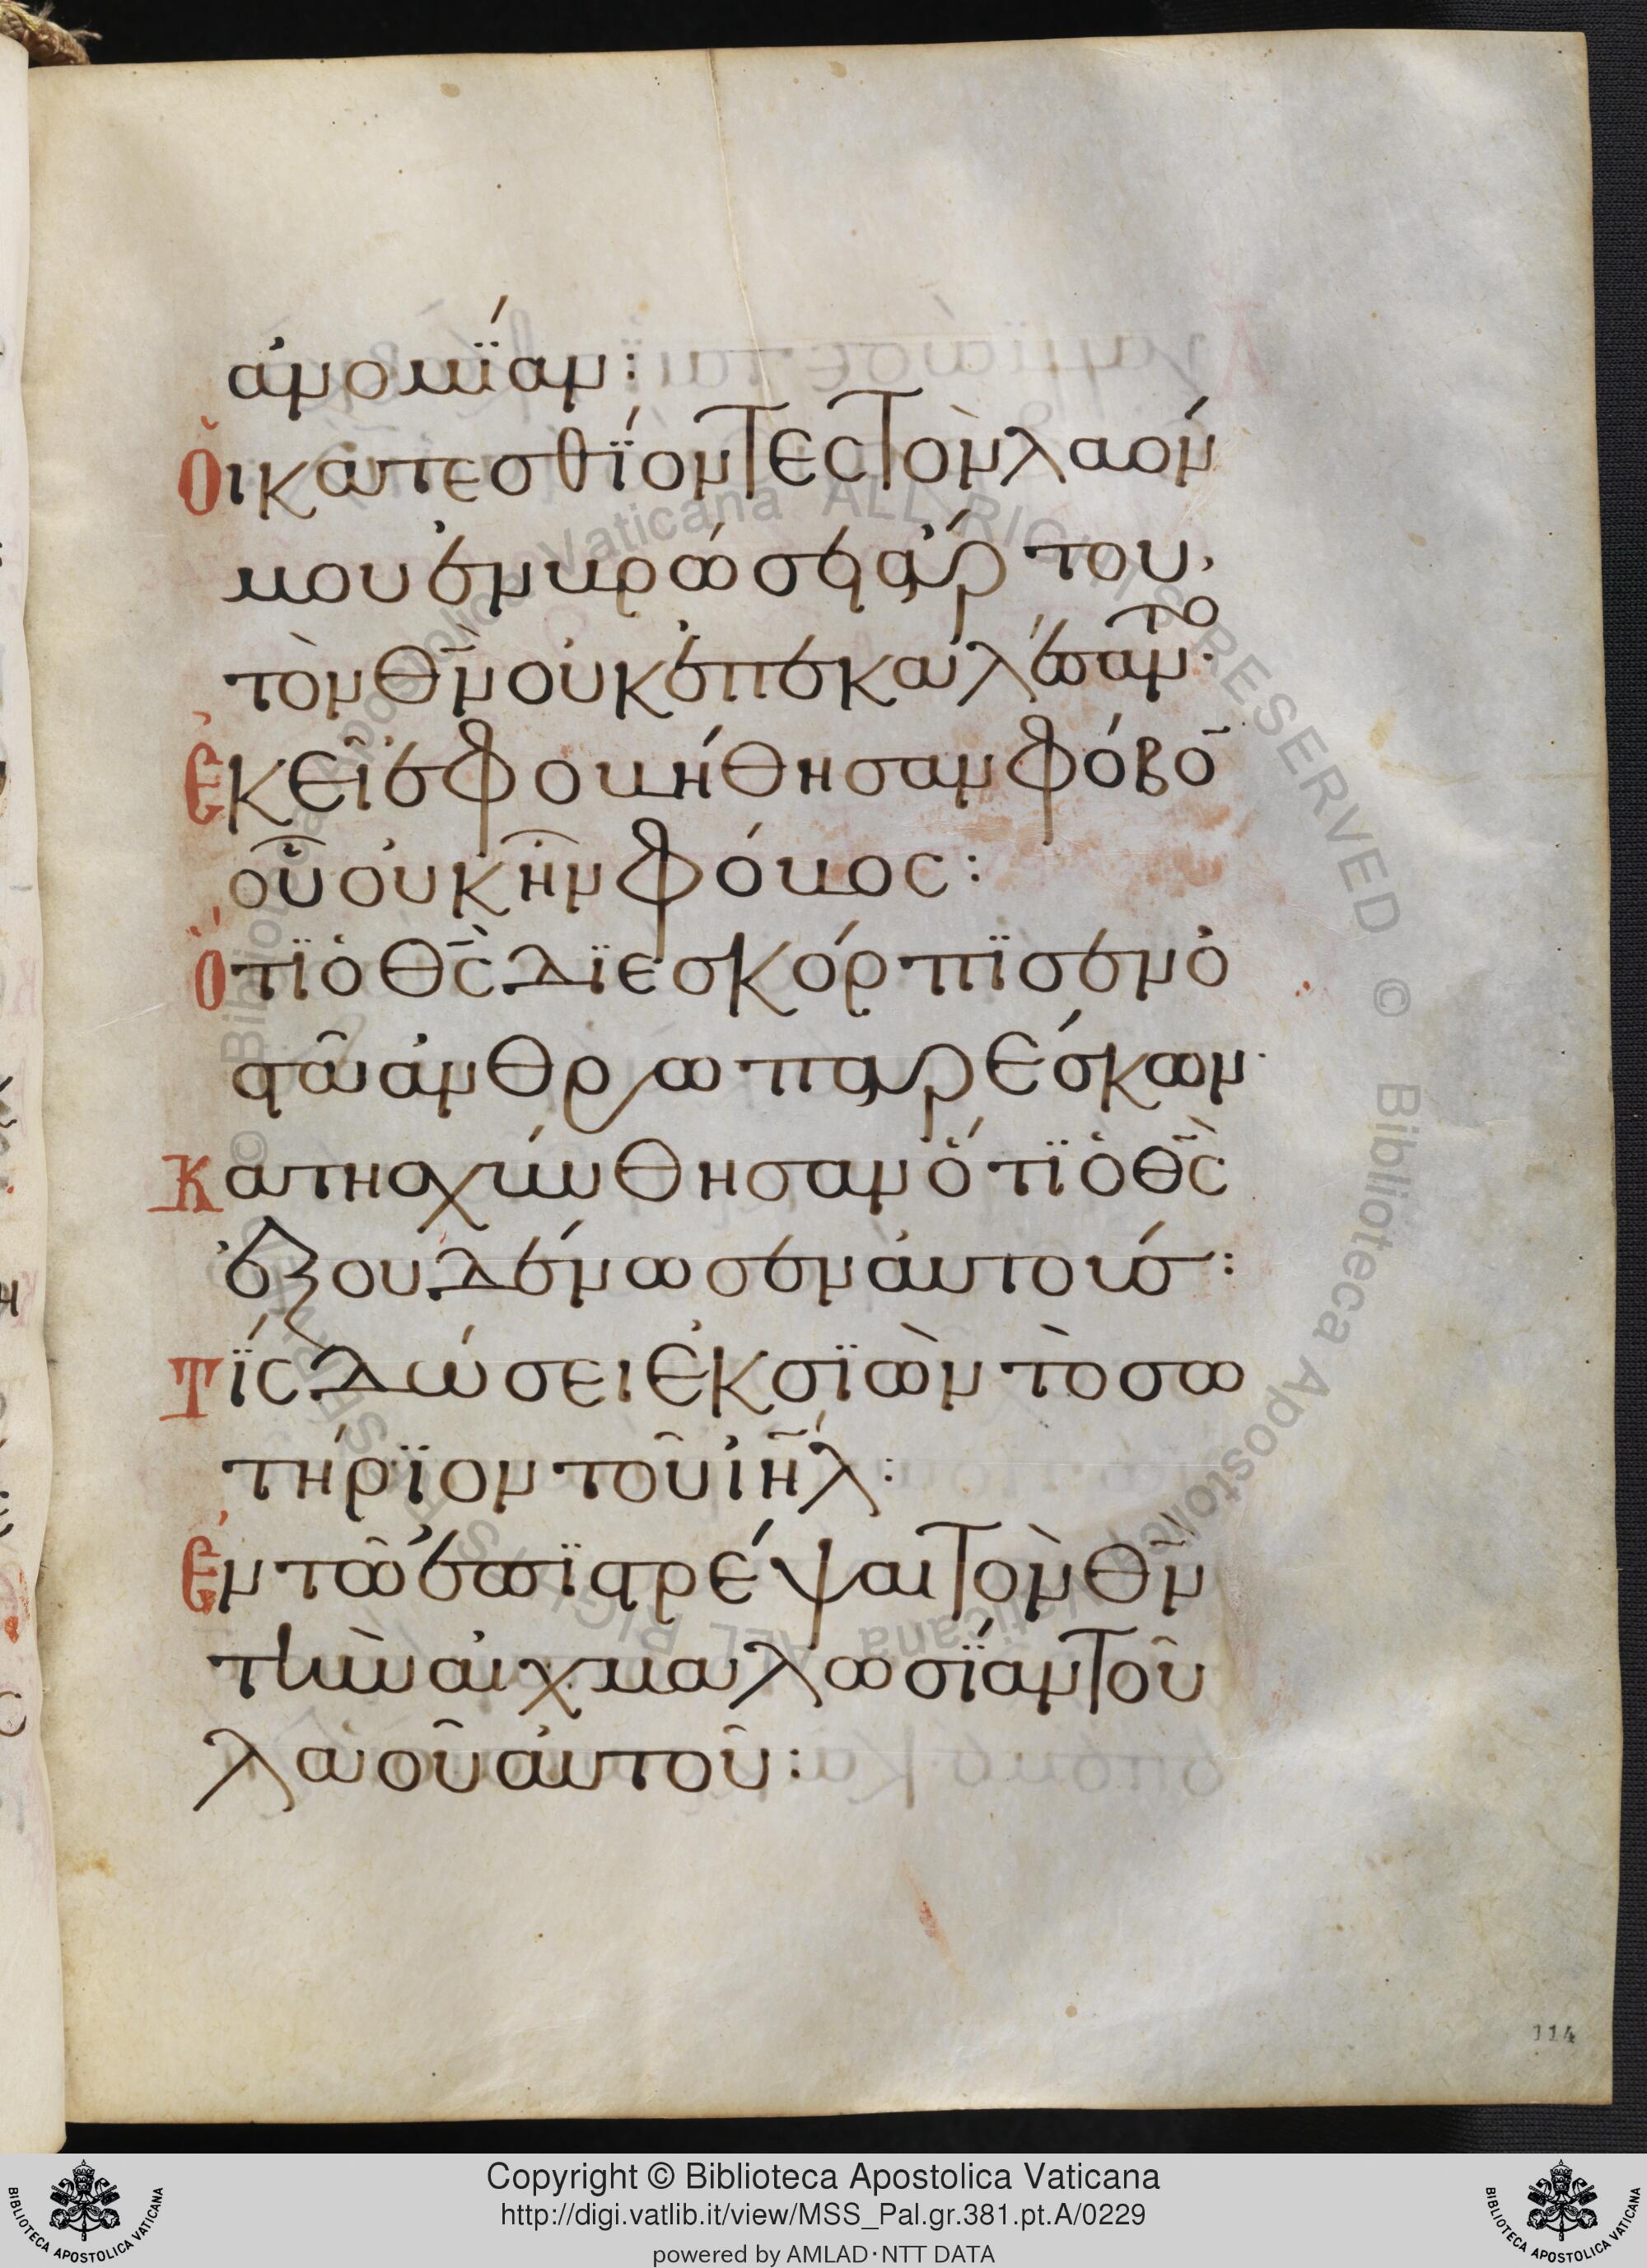 ἀνομίαν:
Ὀι κατεσθίοντες τὸν λαόν
μου ἐν βρώσει ἄρτου,
τὸν θ̅ν̅ οὐκ ἐπεκαλέσαντο·
Ἐκεῖ ἐφοβήθησαν φόβο̅
οὗ οὐκ ἦν φόβος:
Ὅτι ὁ θ̅ς̅ διεσκόρπισεν ὀ
στᾶ ἀνθρωπαρέσκων·
Κατησχύνθησαν ὅτι ὁ θ̅ς̅
ἐξουδένωσεν ἀυτούσ:
Τίς δώσει ἐκ σιὼν τὸ σω
τήριον τοῦ ἰη̅λ:
Ἐν τῶ ἐπιστρέψαι τὸν θ̅ν̅
τὴν αἰχμαλωσίαν τοῦ
λαοῦ ἀυτοῦ:
114
© Biblioteca Apostolica Vaticana ALL RIGHTS RESERVED © Biblioteca Apostolica Vaticana ALL RIGHTS RESERVED
BIBLIOTECA APOSTOLICA VATICANA
Copyright © Biblioteca Apostolica Vaticana
http://digi.vatlib.it/view/MSS_Pal.gr.381.pt.A/0229
powered by AMLAD·NTT DATA
BIBLIOTECA APOSTOLICA VATICANA